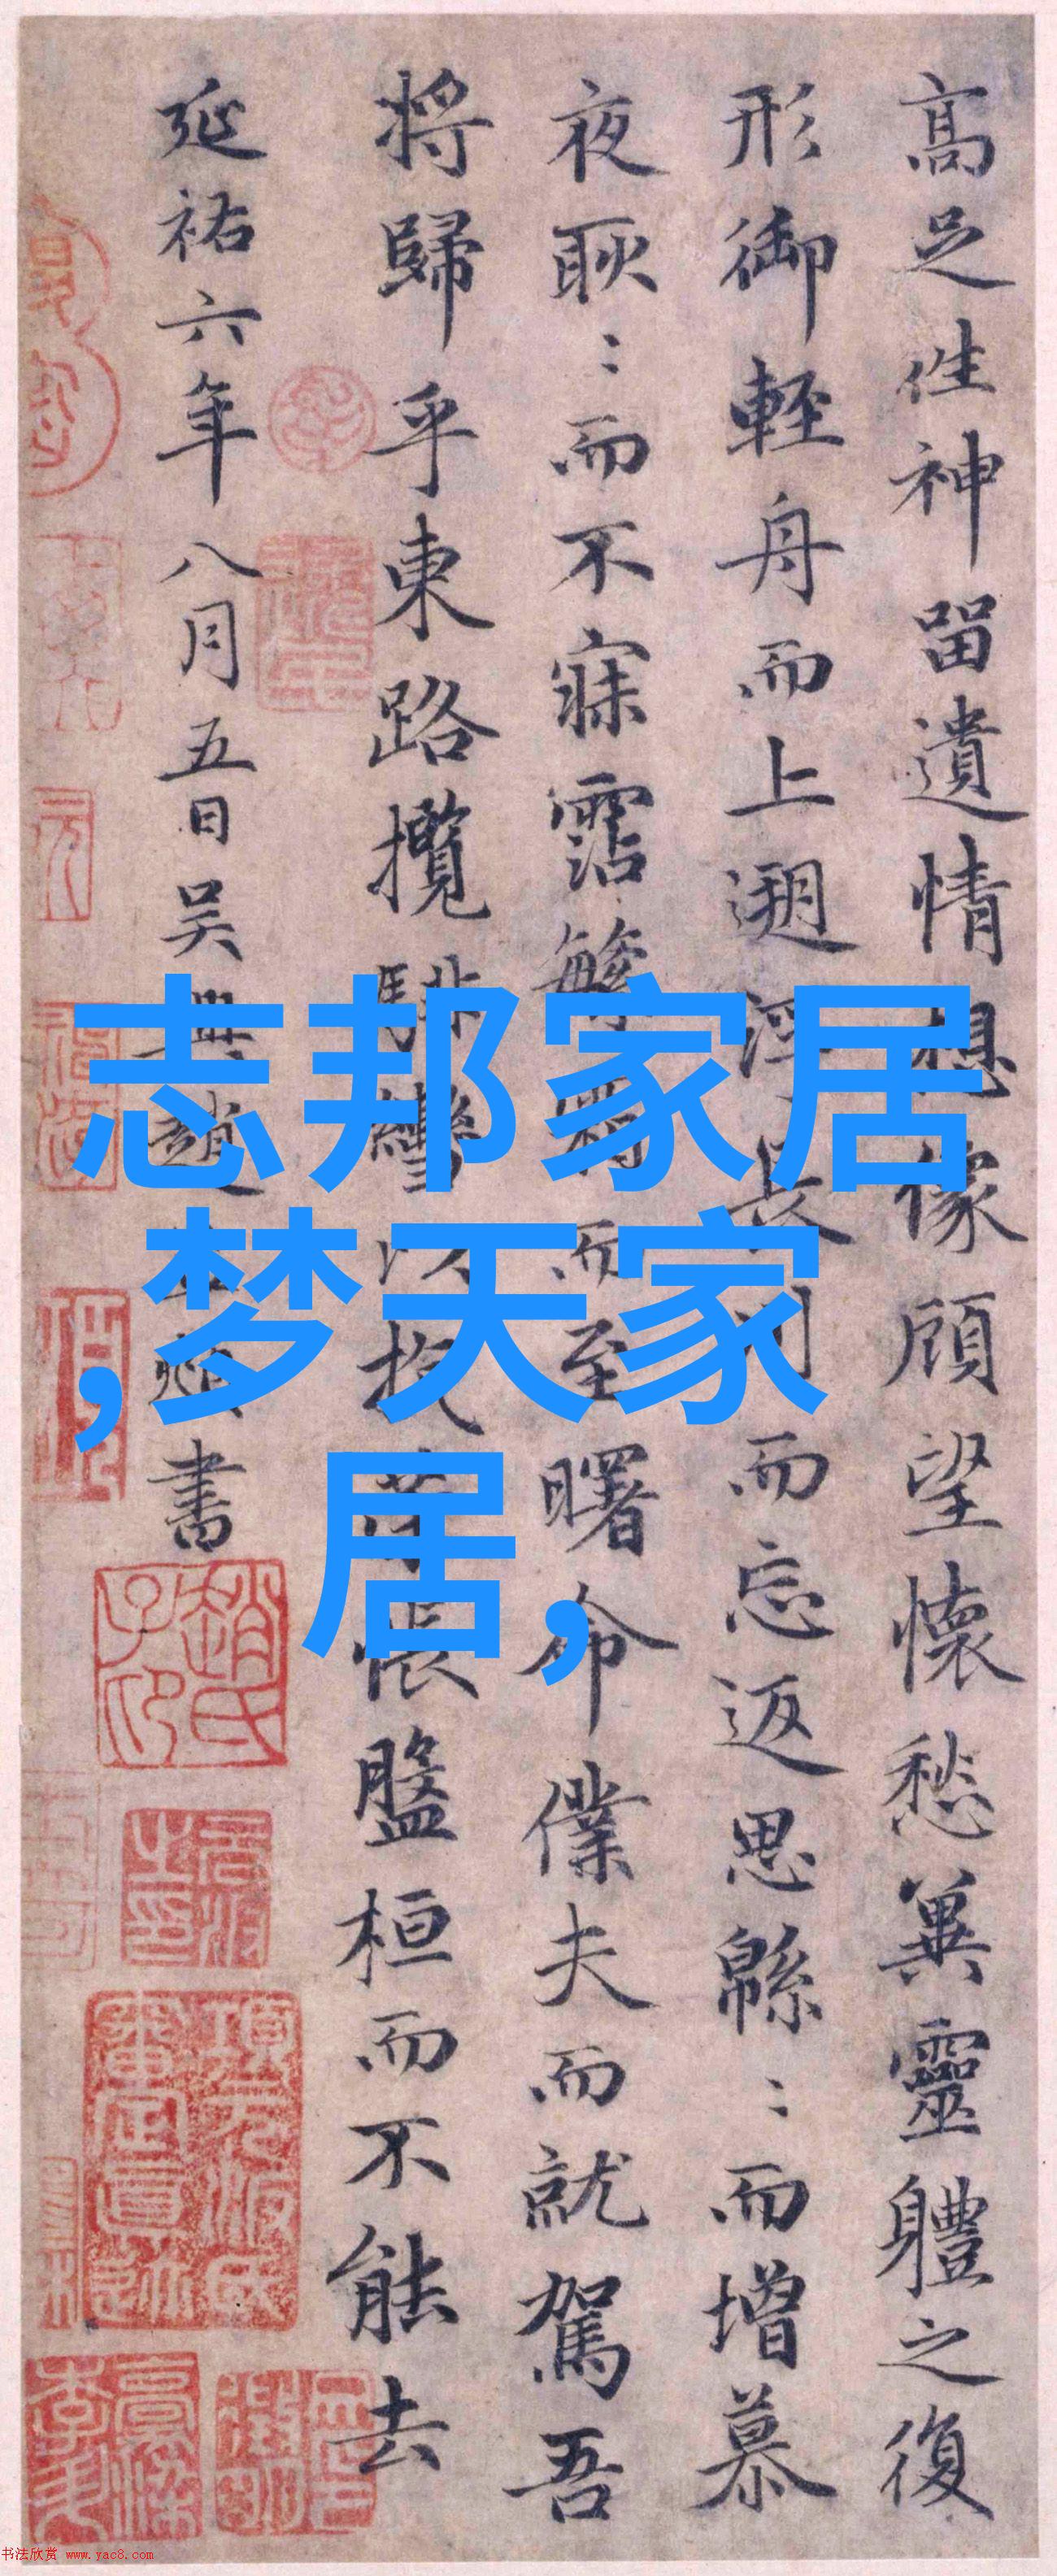 高足往神留遺情想像顧望懷愁冀靈體之復
形御輕舟而上遡浮長川而忘返思緜〻而增慕
夜耿〻而不寐霑繁霜而至曙命僕夫而就駕吾
將歸乎東路攬騑轡以抗策悵盤桓而不能去
延祐六年八月五日吳興趙孟頫書
志邦家居
,梦天家
居,
趙氏子印
书法欣赏 www.yac8.com